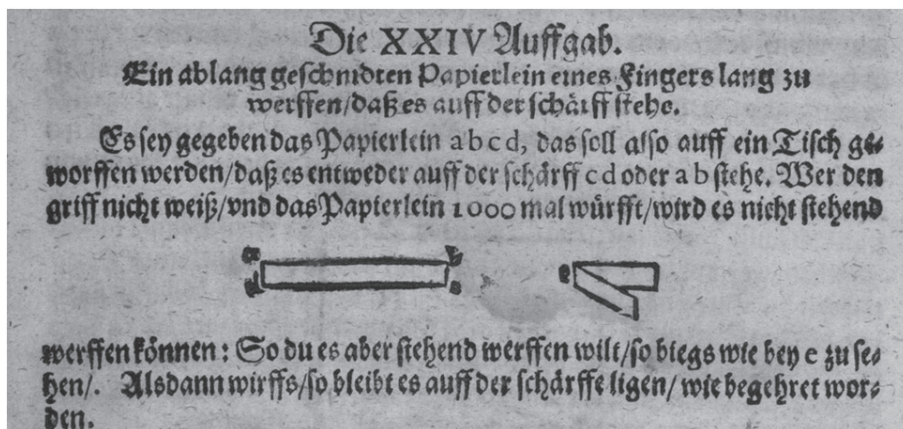 Die XXIV Auffgab.
Ein ablang geschnidten Papierlein eines Fingers lang zu
werffen/daß es auff der schärff stehe.
Es sey gegeben das Papierlein a b c d, das soll also auff ein Tisch ge-
worffen werden/daß es entweder auff der schärff c d oder a b stehe. Wer den
griff nicht weiß/vnd das Papierlein 1000 mal würfft/wird es nicht stehend
a b
d c e
werffen können: So du es aber stehend werffen wilt/so biegs wie bey e zu se-
hen/. Alsdann wirffs/so bleibt es auff der schärffe ligen/ wie begehret wor-
den.